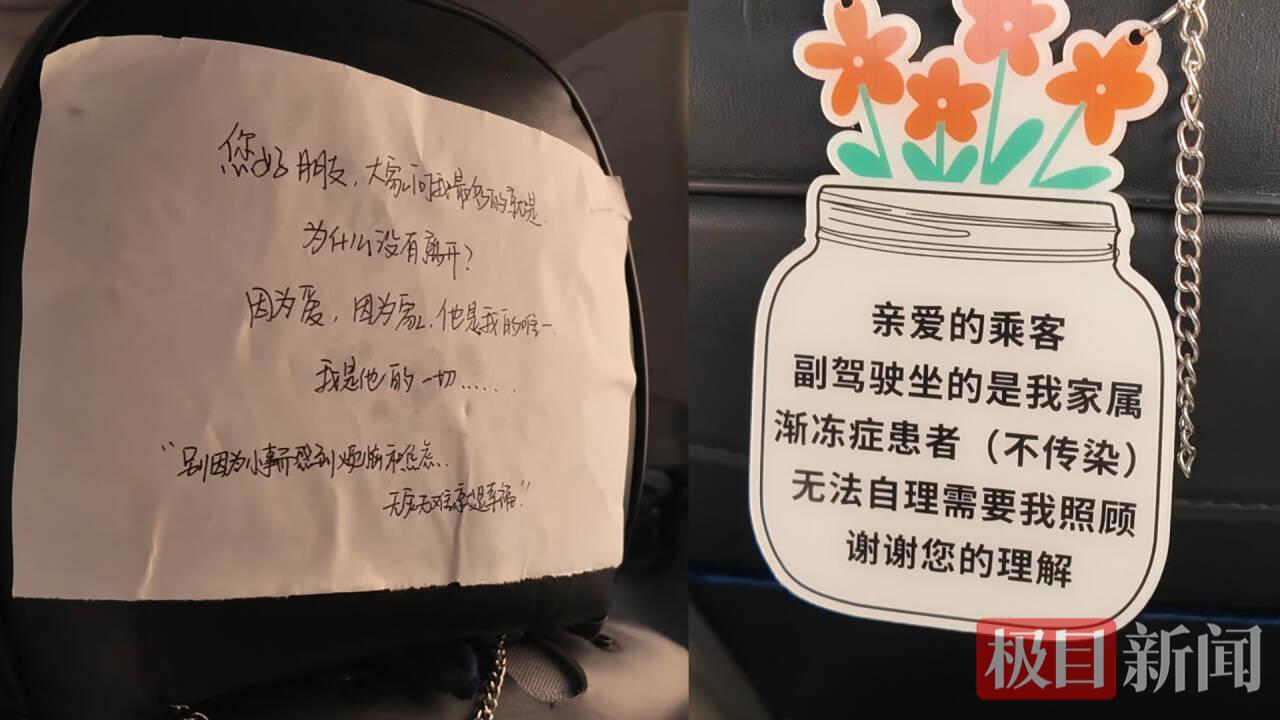 您好朋友，大家问我最多的就是
为什么没有离开？
因为爱，因为家，他是我的唯一
我是他的一切......
“别因为小事而感到烦恼和焦虑.
无灾无难就是幸福”
亲爱的乘客
副驾驶坐的是我家属
渐冻症患者（不传染）
无法自理需要我照顾
谢谢您的理解
极目新闻